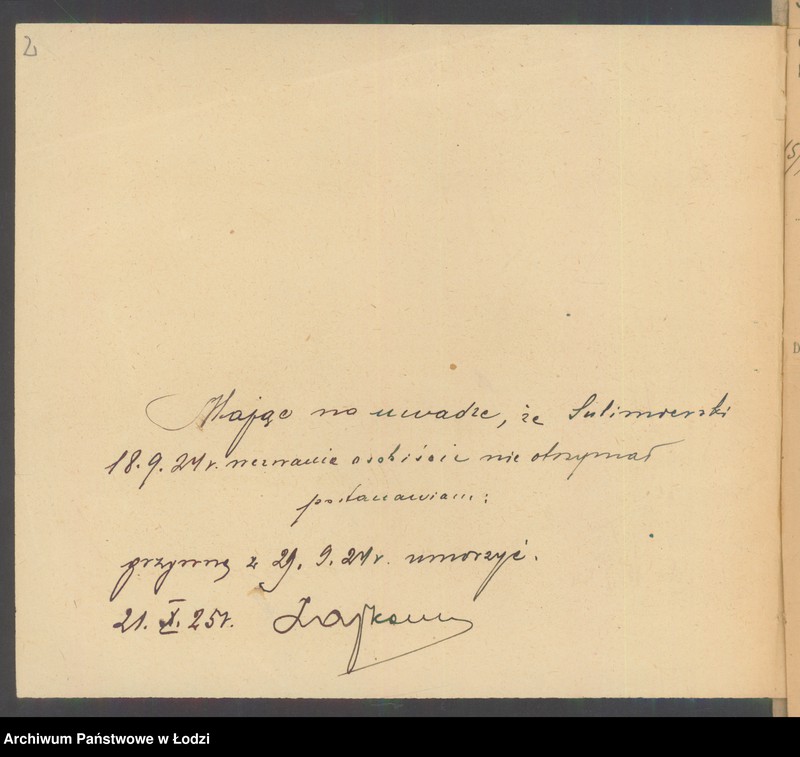 2
Mając na uwadze, że Sulimierski
18.9.24r. wezwania osobiście nie otrzymał
postanawiam:
grzywnę z 29. 9. 24r. umorzyć.
21. X. 25r.
Archiwum Państwowe w Łodzi